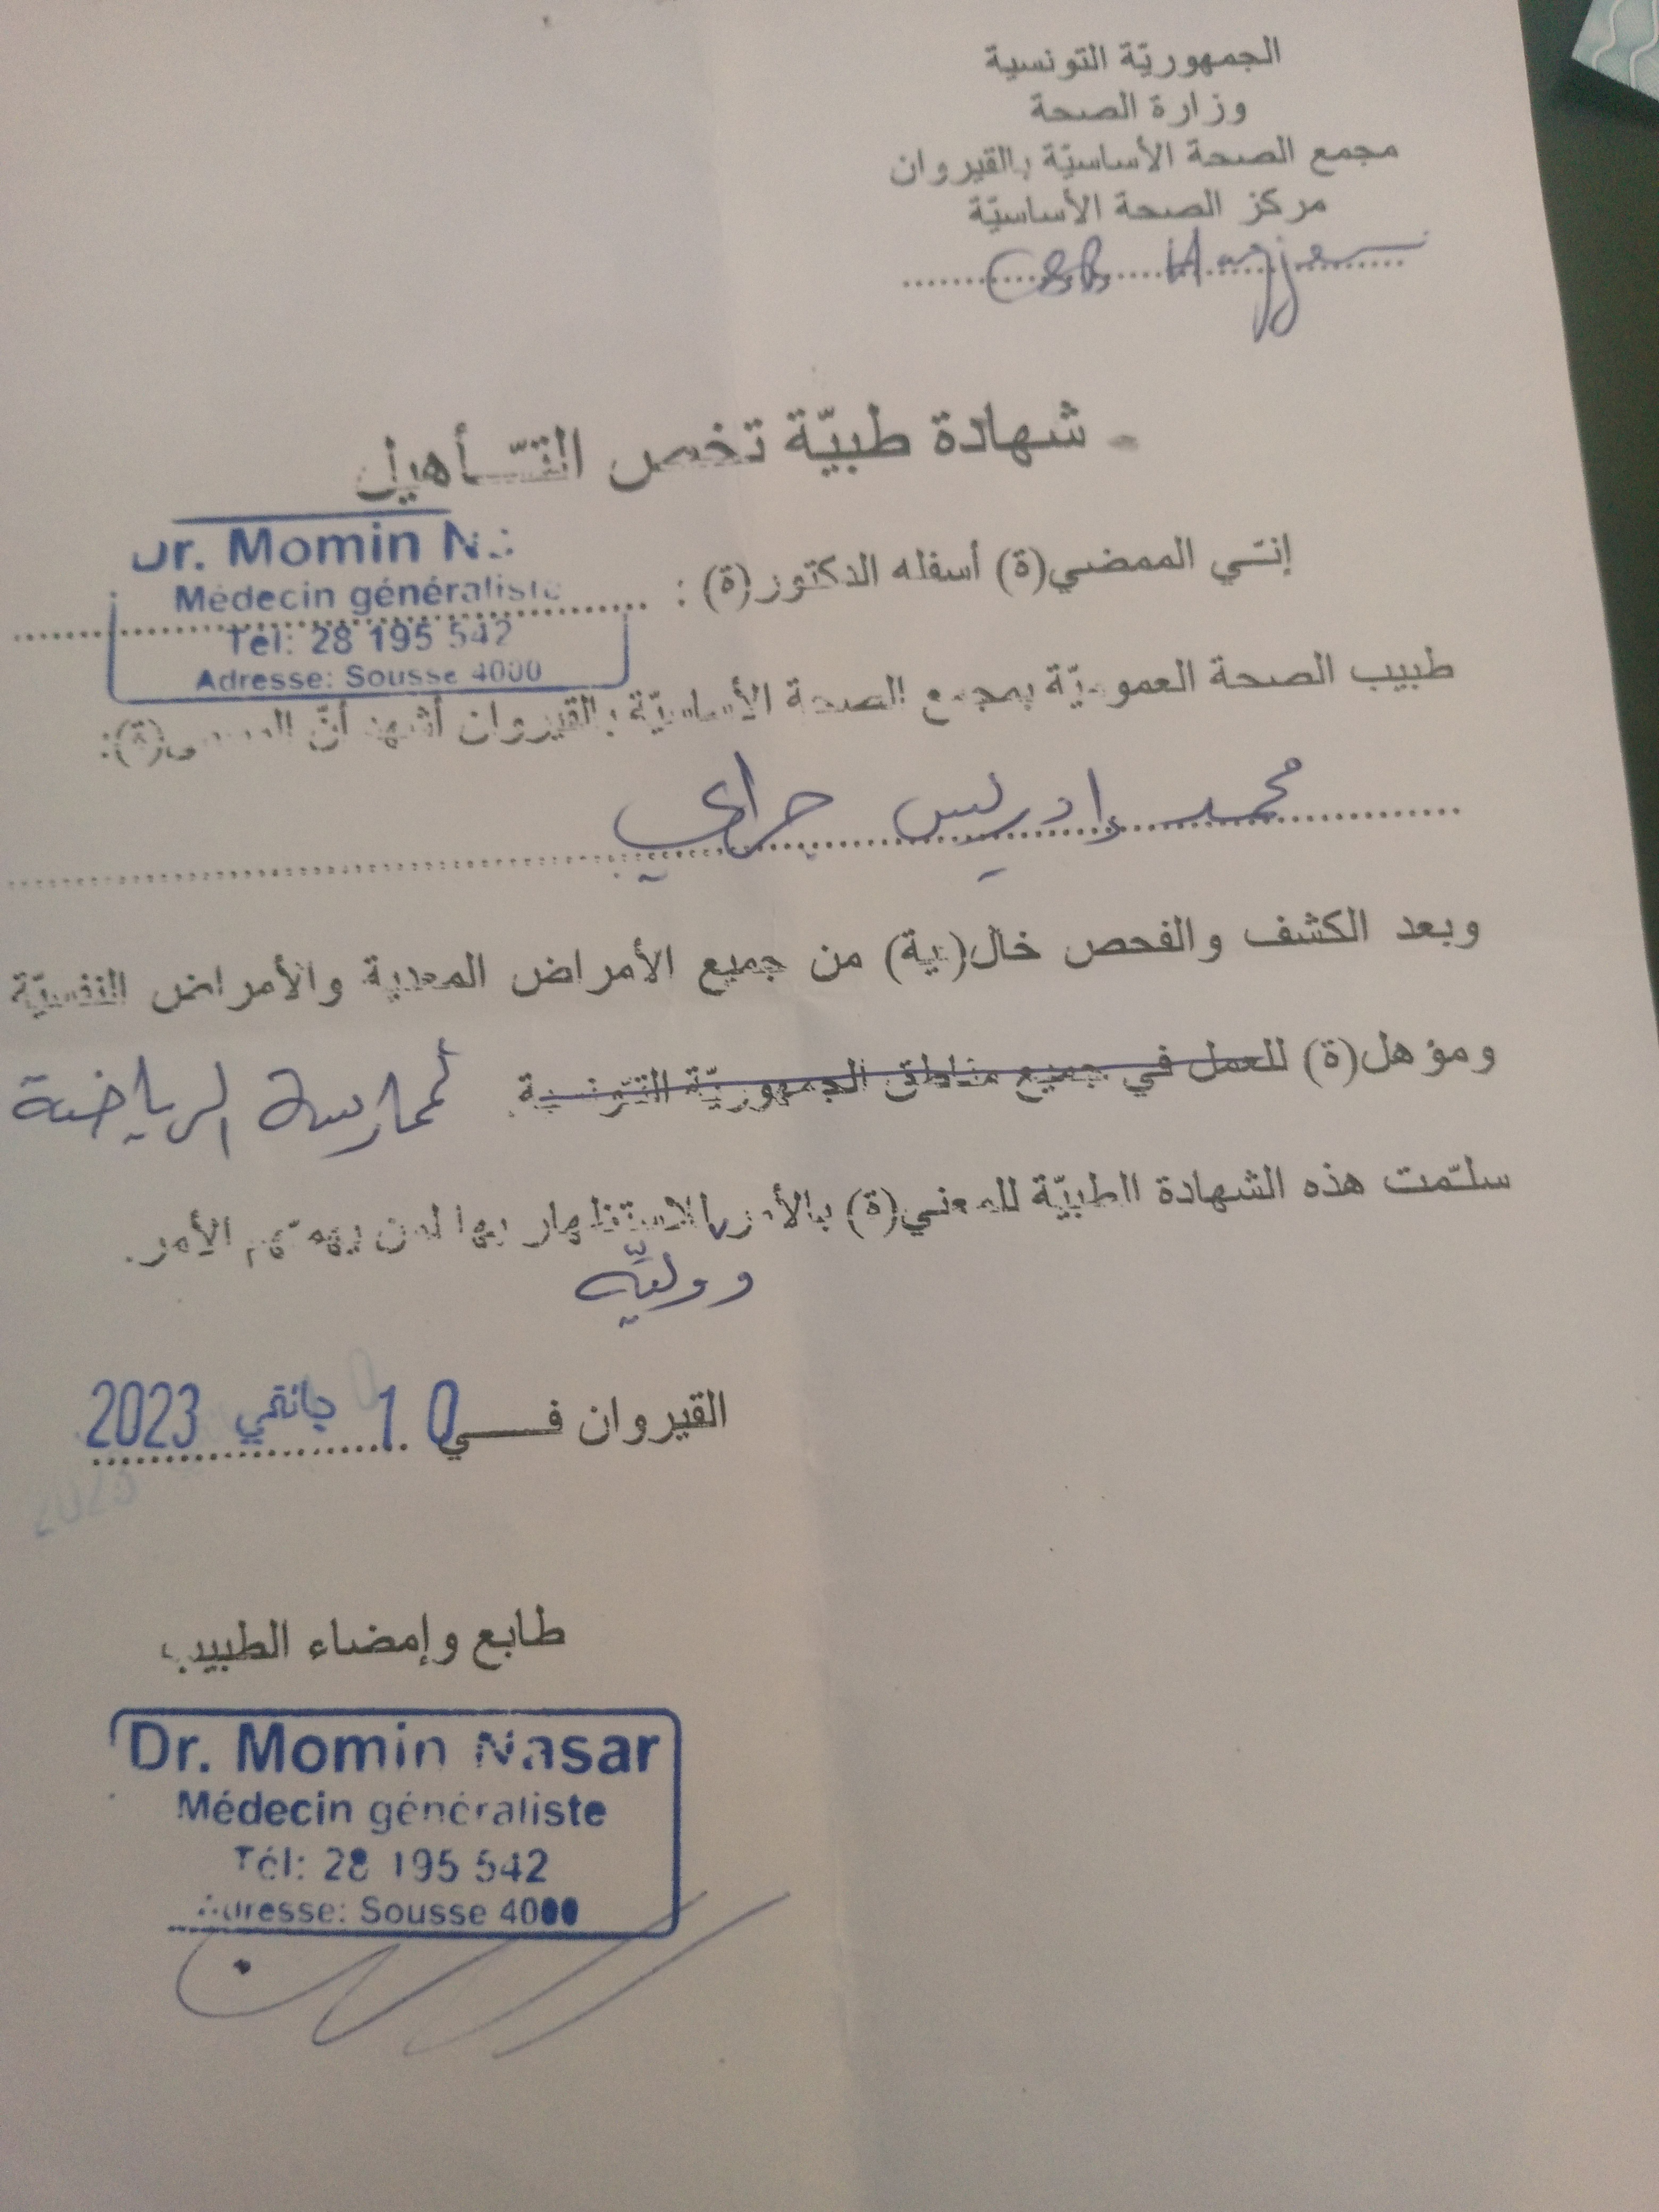 الجمهوريّة التونسية
وزارة الصحة
مجمع الصحة الأساسيّة بالقيروان
مركز الصحة الأساسيّة
CSB
- شهادة طبيّة تخص التـّـأهيل
إنـّـي الممضي(ة) أسفله الدكتور(ة) :
Dr. Momin
Médecin généraliste
Tel: 28 195 542
Adresse: Sousse 4000
طبيب الصحة العموميّة بمجمع الصحة الأساسيّة بالقيروان أشهد أنّ المسمى(ة):
محمد إدريس
وبعد الكشف والفحص خال(ية) من جميع الأمراض المعدية والأمراض النفسيّة
ومؤهل(ة) للعمل في جميع مناطق الجمهوريّة التـّونسية. لممارسة الرياضة
سلـّمت هذه الشهادة الطبيّة للمعني(ة) بالأمر للاستظهار بها لمن يهمهم الأمر.
ووليّه
القيروان فـــــي 10 جانفي 2023
طابع وإمضاء الطبيب
Dr. Momin Nasar
Médecin généraliste
Tél: 28 195 542
Adresse: Sousse 4000